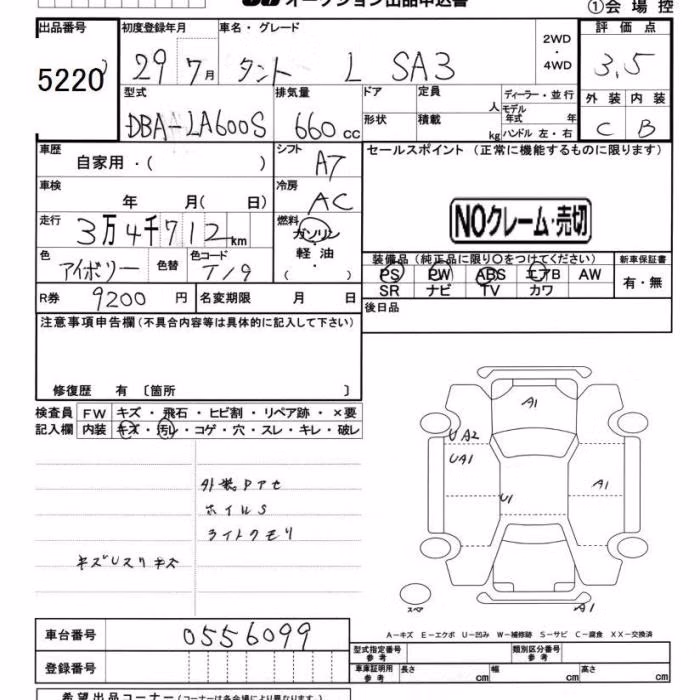 オークション出品申込書
①会場控
出品番号 初度登録年月 車名・グレード 2WD・4WD 評価点
5220 29 7月 タント L SA3 3.5
型式 排気量 ドア 定員 人 ディーラー・並行 外装 内装
モデル年式 年
DBA-LA600S 660cc 形状 積載 kg ハンドル 左・右 C B
車歴 シフト セールスポイント(正常に機能するものに限ります)
自家用・( ) AT
車検 冷房
年 月( 日) AC NOクレーム・売切
走行 燃料
3万4千712km ガソリン・軽油・( )
色 色替 色コード 装備品(純正品に限り○をつけてください) 新車保証書
アイボリー T19 PS PW ABS エアB AW 有・無
SR ナビ TV カワ
R券 9200円 名変期限 月 日 後日品
注意事項申告欄(不具合内容等は具体的に記入して下さい)
修復歴 有 〔箇所 〕
検査員 FW キズ・飛石・ヒビ割・リペア跡・×要
記入欄 内装 キズ・汚レ・コゲ・穴・スレ・キレ・破レ
ホイルS
ライトクモリ
A1
UA2
UA1
U1
A1
スペア
A1
A-キズ E-エクボ U-凹み W-補修跡 S-サビ C-腐食 XX-交換済
車台番号 0556099 型式指定番号参考 類別区分番号参考
登録番号 車庫証明用参考 長さ cm 幅 cm 高さ cm
希望出品コーナー(コーナーは各会場により異なります)